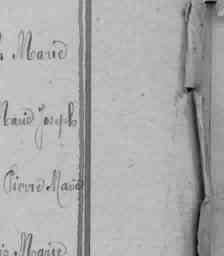 Marie
Marie Joseph
Pierre Marie
Marie